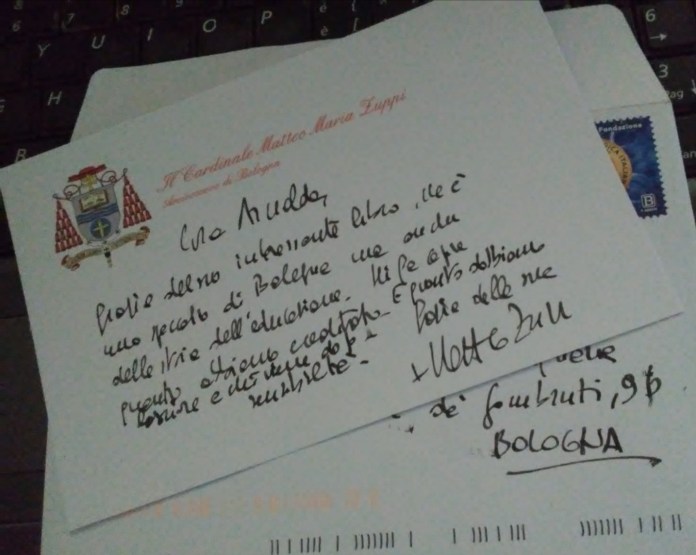 Il Cardinale Matteo Maria Zuppi
Arcivescovo di Bologna
Cara
grazie del suo interessante libro, che è
uno spaccato di Bologna ma anche
della storia dell'educazione. Mi fa capire
quanto abbiamo ereditato e quanto dobbiamo
e
Grazie della sua
sensibilità.
+ Matteo Zuppi
de' Gombruti, 9
BOLOGNA
Fondazione
B
Y U I O P
H
6
3
7
8
9
B